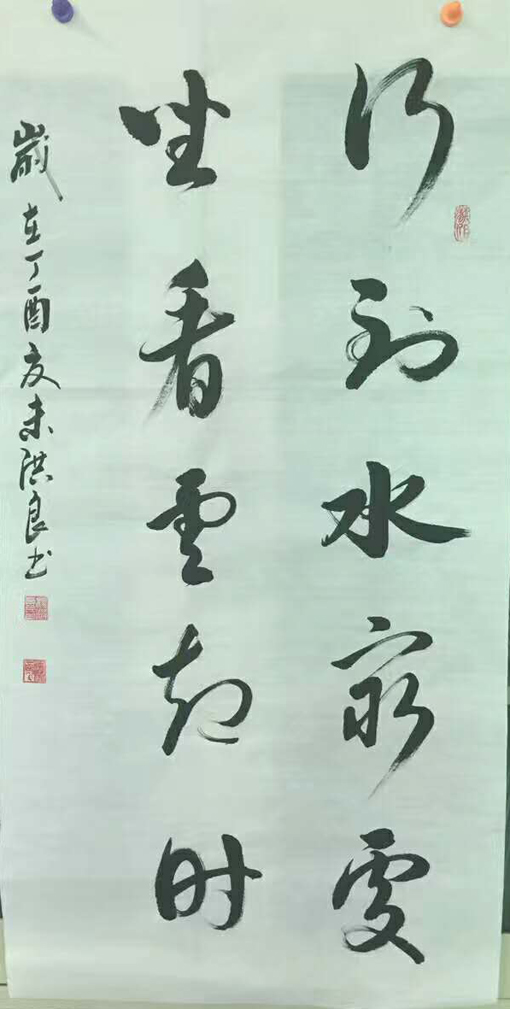 行到水窮處
坐看雲起时
歲在丁酉友未洪良书